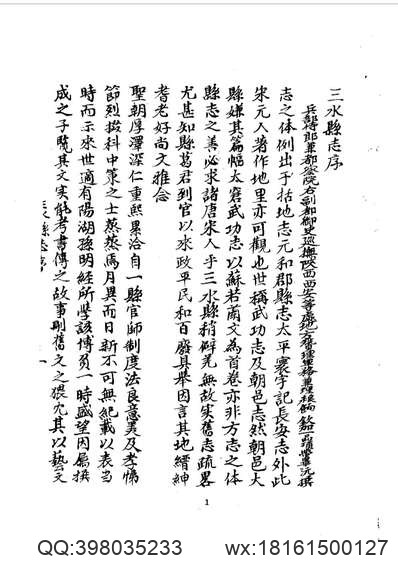 三水縣志序
兵部侍郎兼都察院右副都御史巡撫陝西西安等處地方贊理軍務兼理糧餉
志之体例出于括地志元和郡縣志太平寰宇記長安志外此
宋元人著作地里亦可觀也世稱武功志及朝邑志然朝邑大
縣嫌其篇幅太窘武功志以蘇若蘭文為首卷亦非方志之体
縣志之善必求諸唐宋人乎三水縣稍僻羌無故实舊志疏畧
尤甚知縣葛君到官以來政平民和百廢具舉因言其地縉紳
耆老好尚文雅念
聖朝厚澤深仁重熙累洽自一縣官師制度法良意美及孝悌
節烈掇科中策之士蒸蒸焉月異而日新不可無紀載以表当
時而示來世適有陽湖孫明經所學該博負一時盛望因属撰
成之予覽其文实能考書傳之故事刪舊文之猥冗其以藝文
三水縣志序
一
1
QQ:398035233
wx:18161500127